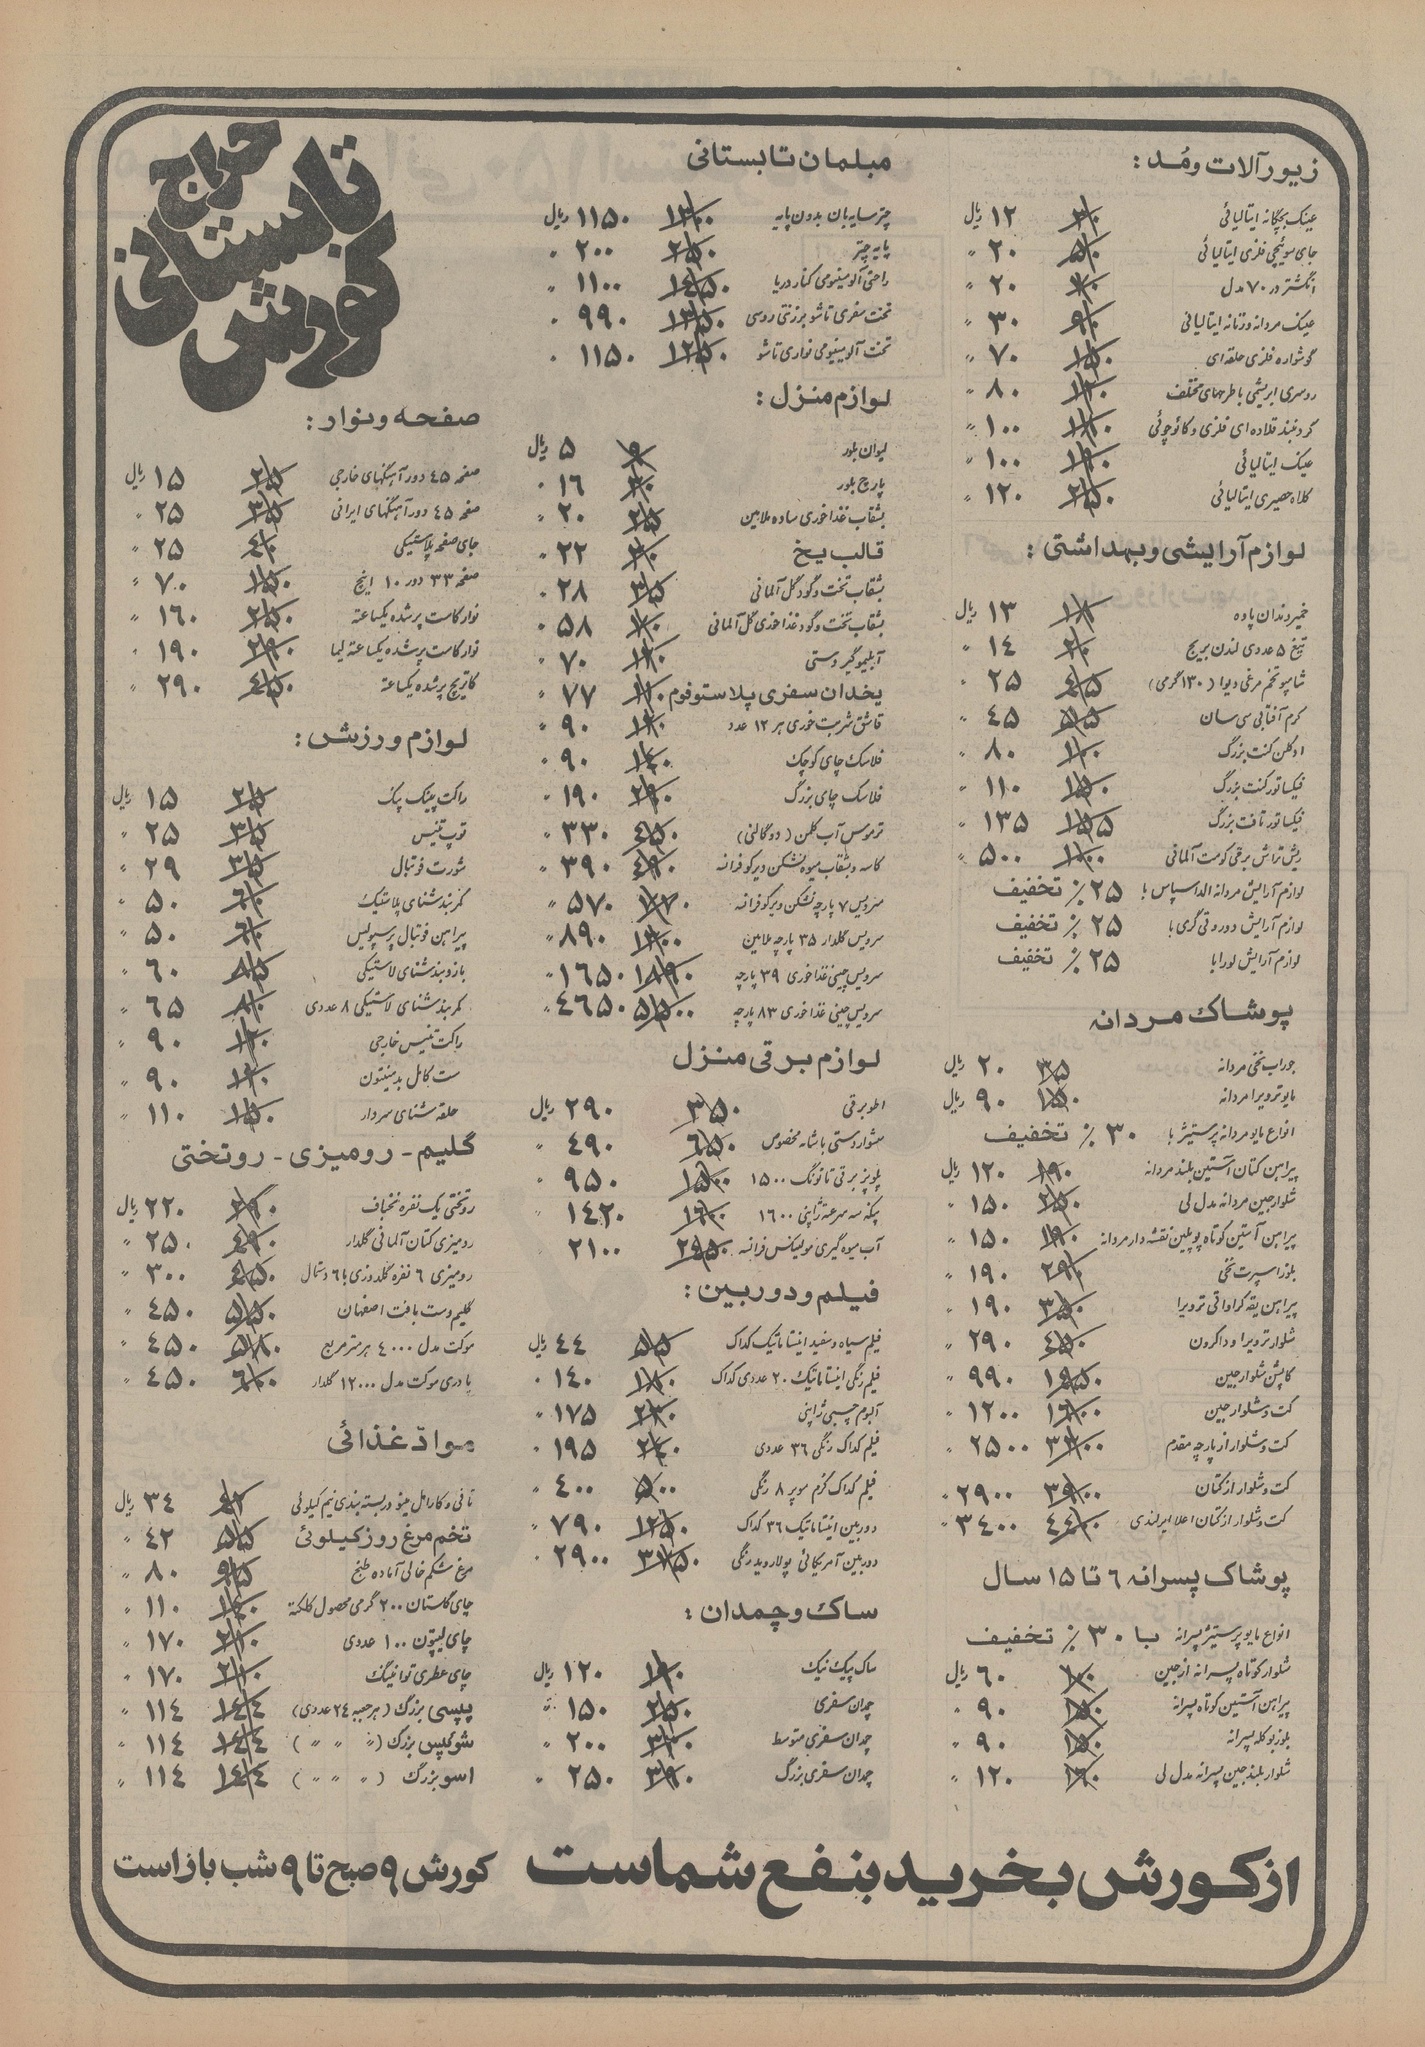 حراج
تابستانی
کورش
زیورآلات و مُد :
عینک بچگانه ایتالیائی ۳۰ ۱۲ ریال
جای سوئیچی فلزی ایتالیائی ۵۰ ۲۰ "
انگشتر در ۷۰ مدل ۲۰ "
عینک مردانه و زنانه ایتالیائی ۹۰ ۳۰ "
گوشواره فلزی حلقه‌ای ۱۵۰ ۷۰ "
روسری ابریشمی با طرحهای مختلف ۱۲۰ ۸۰ "
گردنبند قلاده‌ای فلزی و کائوچوئی ۱۰۰ "
عینک ایتالیائی ۱۹۰ ۱۰۰ "
کلاه حصیری ایتالیائی ۲۵۰ ۱۲۰ "
لوازم آرایشی و بهداشتی :
خمیردندان پاوه ۱۳ ریال
تیغ ۵ عددی لندن بریج ۲۰ ۱۴ "
شامپو تخم مرغی دیوا (۱۳۰ گرمی) ۴۵ ۲۵ "
کرم آفتابی سی سان ۵۵ ۴۵ "
ادکلن کنت بزرگ ۱۰۰ ۸۰ "
فیکساتور کنت بزرگ ۱۵۰ ۱۱۰ "
فیکساتور تافت بزرگ ۱۵۵ ۱۳۵ "
ریش تراش برقی کومت آلمانی ۵۰۰ "
لوازم آرایش مردانه الد اسپایس با ۲۵ ٪ تخفیف
لوازم آرایش دوروتی گری با ۲۵ ٪ تخفیف
لوازم آرایش لورا با ۲۵ ٪ تخفیف
پوشاک مردانه
جوراب نخی مردانه ۳۵ ۲۰ ریال
مایو ترویرا مردانه ۱۵۰ ۹۰ ریال
انواع مایو مردانه پرستیژ با ۳۰ ٪ تخفیف
پیراهن کتان آستین بلند مردانه ۱۹۰ ۱۲۰ ریال
شلوار جین مردانه مدل لی ۲۵۰ ۱۵۰ "
پیراهن آستین کوتاه پوپلین نقشه دار مردانه ۱۹۰ ۱۵۰ "
بلوز اسپرت نخی ۲۹۰ ۱۹۰ "
پیراهن یقه کراواتی ترویرا ۳۵۰ ۱۹۰ "
شلوار ترویرا و داکرون ۴۵۰ ۲۹۰ "
کاپشن شلوار جین ۱۹۵۰ ۹۹۰ "
کت و شلوار جین ۱۶۰۰ ۱۲۰۰ "
کت و شلوار از پارچه مقدم ۳۳۰۰ ۲۵۰۰ "
کت و شلوار از کتان ۳۹۰۰ ۲۹۰۰ "
کت و شلوار از کتان اعلا ایرلندی ۴۴۰۰ ۳۴۰۰ "
پوشاک پسرانه ۶ تا ۱۵ سال
انواع مایو پرستیژ پسرانه با ۳۰ ٪ تخفیف
شلوار کوتاه پسرانه از جین ۶۰ ریال
پیراهن آستین کوتاه پسرانه ۱۵۰ ۹۰ "
بلوز یوکله پسرانه ۱۵۰ ۹۰ "
شلوار بلند جین پسرانه مدل لی ۱۲۰ "
مبلمان تابستانی
چتر سایه‌بان بدون پایه ۱۳۰۰ ۱۱۵۰ ریال
پایه چتر ۲۵۰ ۲۰۰ "
راحتی آلومینیومی کنار دریا ۱۴۵۰ ۱۱۰۰ "
تخت سفری تاشو برزنتی روسی ۱۳۵۰ ۹۹۰ "
تخت آلومینیومی نواری تاشو ۱۲۵۰ ۱۱۵۰ "
لوازم منزل :
لیوان بلور ۹ ۵ ریال
پارچ بلور ۳۰ ۱۶ "
بشقاب غذاخوری ساده ملامین ۲۵ ۲۰ "
قالب یخ ۳۰ ۲۲ "
بشقاب تخت و گود گل آلمانی ۳۵ ۲۸ "
بشقاب تخت و گود غذاخوری گل آلمانی ۵۸ "
آبلیموگیر دستی ۷۰ "
یخدان سفری پلاستوفوم ۷۷ "
قاشق شربت خوری هر ۱۲ عدد ۹۰ "
فلاسک چای کوچک ۹۰ "
فلاسک چای بزرگ ۲۹۰ ۱۹۰ "
ترموس آب کلمن (دو گالنی) ۴۵۰ ۳۳۰ "
کاسه و بشقاب میوه نشکن دیرکو فرانسه ۴۹۰ ۳۹۰ "
سرویس ۷ پارچه نشکن ویرکو فرانسه ۵۷۰ "
سرویس گلدار ۳۵ پارچه ملامین ۸۹۰ "
سرویس چینی غذاخوری ۳۹ پارچه ۱۸۹۰ ۱۶۵۰ "
سرویس چینی غذاخوری ۸۳ پارچه ۵۵۰۰ ۴۶۵۰ "
لوازم برقی منزل
اطو برقی ۳۵۰ ۲۹۰ ریال
سشوار دستی با شانه مخصوص ۶۵۰ ۴۹۰ "
پلوپز برقی تاتونگ ۱۵۰۰ ۱۵۰۰ ۹۵۰ "
پنکه سه سرعته ژاپنی ۱۶۰۰ ۱۶۰۰ ۱۴۲۰ "
آب میوه گیری مولینکس فرانسه ۲۹۵۰ ۲۱۰۰ "
فیلم و دوربین :
فیلم سیاه و سفید اینستاماتیک کداک ۵۵ ۴۴ ریال
فیلم رنگی اینستاماتیک ۲۰ عددی کداک ۱۸۰ ۱۴۰ "
آلبوم چسبی ژاپنی ۲۳۰ ۱۷۵ "
فیلم کداک رنگی ۳۶ عددی ۲۴۰ ۱۹۵ "
فیلم کداک کرم سوپر ۸ رنگی ۵۰۰ ۴۰۰ "
دوربین اینستاماتیک ۳۶ کداک ۱۲۵۰ ۷۹۰ "
دوربین آمریکائی پولاروید رنگی ۳۷۵۰ ۲۹۰۰ "
ساک و چمدان :
ساک پیک نیک ۱۹۰ ۱۲۰ ریال
چمدان سفری ۲۵۰ ۱۵۰ "
چمدان سفری متوسط ۳۲۰ ۲۰۰ "
چمدان سفری بزرگ ۳۹۰ ۲۵۰ "
صفحه و نوار :
صفحه ۴۵ دور آهنگهای خارجی ۲۵ ۱۵ ریال
صفحه ۴۵ دور آهنگهای ایرانی ۳۵ ۲۵ "
جای صفحه پلاستیکی ۴۰ ۲۵ "
صفحه ۳۳ دور ۱۰ اینچ ۱۵۰ ۷۰ "
نوار کاست پر شده یکساعته ۲۵۰ ۱۶۰ "
نوار کاست پر شده یکساعته لیما ۲۹۰ ۱۹۰ "
کاتریج پر شده یکساعته ۴۵۰ ۲۹۰ "
لوازم ورزش :
راکت پینگ پنگ ۲۵ ۱۵ ریال
توپ تنیس ۳۵ ۲۵ "
شورت فوتبال ۳۵ ۲۹ "
کمربند شنای پلاستیک ۶۰ ۵۰ "
پیراهن فوتبال پرسپولیس ۶۰ ۵۰ "
بازوبند شنای لاستیکی ۸۵ ۶۰ "
کمربند شنای لاستیکی ۸ عددی ۸۰ ۶۵ "
راکت تنیس خارجی ۱۲۰ ۹۰ "
ست کامل بدمینتون ۱۲۰ ۹۰ "
حلقه شنای سردار ۱۵۰ ۱۱۰ "
گلیم - رومیزی - روتختی
روتختی یک نفره نخباف ۲۹۰ ۲۲۰ ریال
رومیزی کتان آلمانی گلدار ۴۹۰ ۲۵۰ "
رومیزی ۶ نفره گلدوزی با ۶ دستمال ۴۵۰ ۳۰۰ "
گلیم دست بافت اصفهان ۵۵۰ ۴۵۰ "
موکت مدل ۴۰۰۰ هر متر مربع ۵۸۰ ۴۵۰ "
پادری موکت مدل ۱۲۰۰۰ گلدار ۶۰۰ ۴۵۰ "
موادّ غذائی
تافی و کارامل مینو در بسته بندی نیم کیلوئی ۴۲ ۳۴ ریال
تخم مرغ روز کیلوئی ۵۵ ۴۲ "
مرغ شکم خالی آماده طبخ ۹۵ ۸۰ "
چای گلستان ۲۰۰ گرمی محصول کلکته ۱۱۰ "
چای لیپتون ۱۰۰ عددی ۲۱۰ ۱۷۰ "
چای عطری توانینگ ۲۱۰ ۱۷۰ "
پپسی بزرگ (هر جعبه ۲۴ عددی) ۱۴۴ ۱۱۴ "
شوئپس بزرگ ( " " " ) ۱۴۴ ۱۱۴ "
اسو بزرگ ( " " " ) ۱۴۴ ۱۱۴ "
از کورش بخرید بنفع شماست
کورش ۹ صبح تا ۹ شب باز است